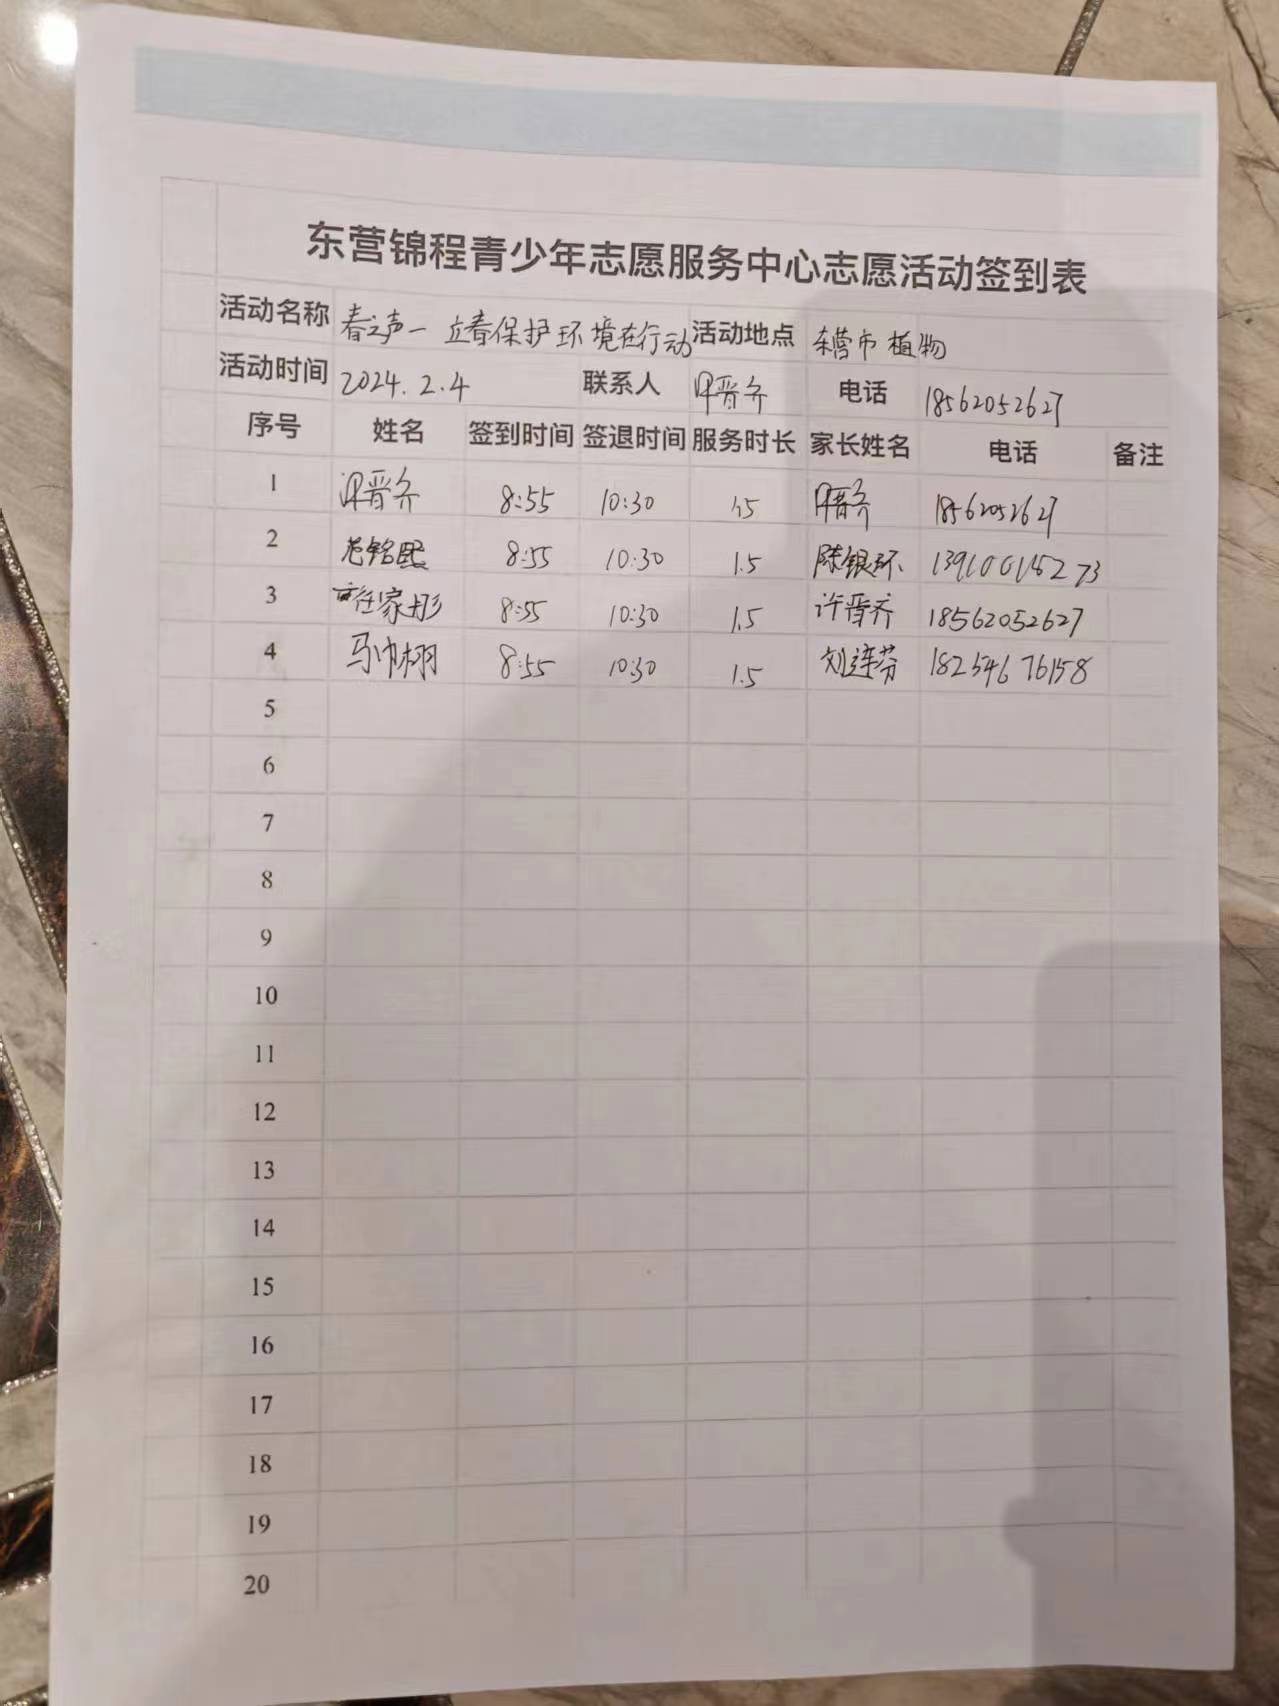 东营锦程青少年志愿服务中心志愿活动签到表
活动名称 春之声一 立春保护环境在行动 活动地点 东营市植物
活动时间 2024.2.4 联系人 晋齐 电话 18562052627
序号 姓名 签到时间 签退时间 服务时长 家长姓名 电话 备注
1 晋齐 8:55 10:30 1.5 晋齐 18562052627
2 铭熙 8:55 10:30 1.5 陈银环
3 家彤 8:55 10:30 1.5 许晋齐 18562052627
4 马 8:55 10:30 1.5 刘连芬 18254676158
5
6
7
8
9
10
11
12
13
14
15
16
17
18
19
20